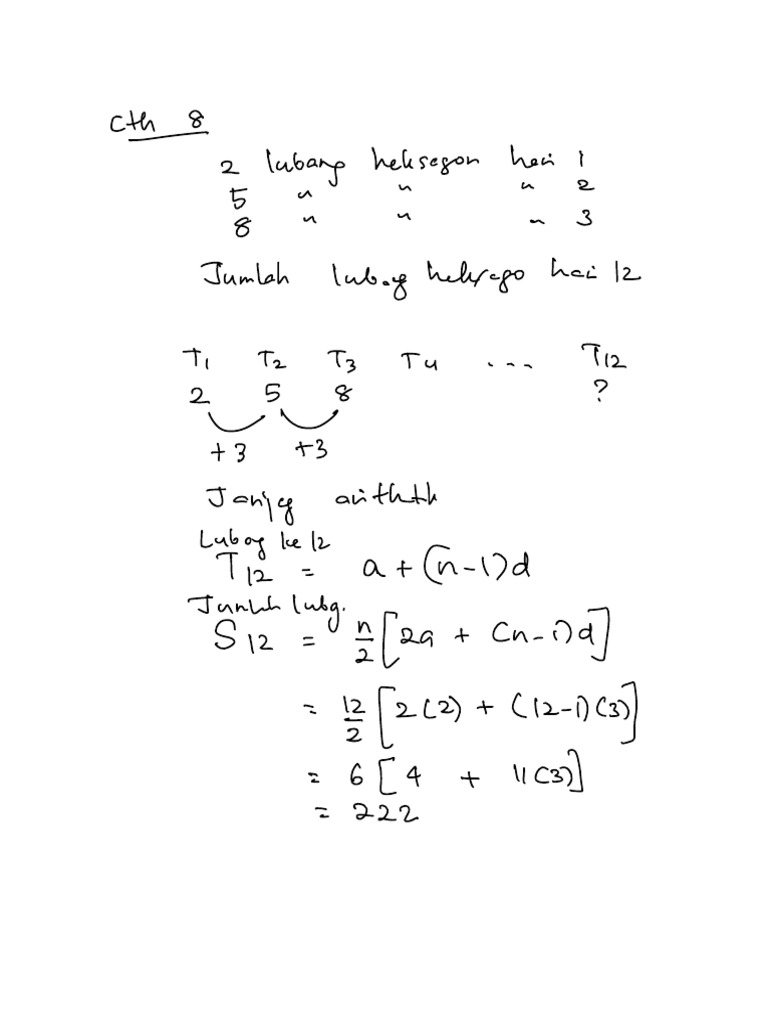 Cth 8
2 lubang heksagon hari 1
5 " " " 2
8 " " " 3
Jumlah lubang heksago hari 12
T₁ T₂ T₃ T4 ... T₁₂
2 5 8 ?
+3 +3
Janjang
Lubang ke 12
T₁₂ = a + (n-1)d
Jumlah lubg.
S₁₂ = n/2 [2a + (n-1)d]
= 12/2 [2(2) + (12-1)(3)]
= 6 [4 + 11(3)]
= 222